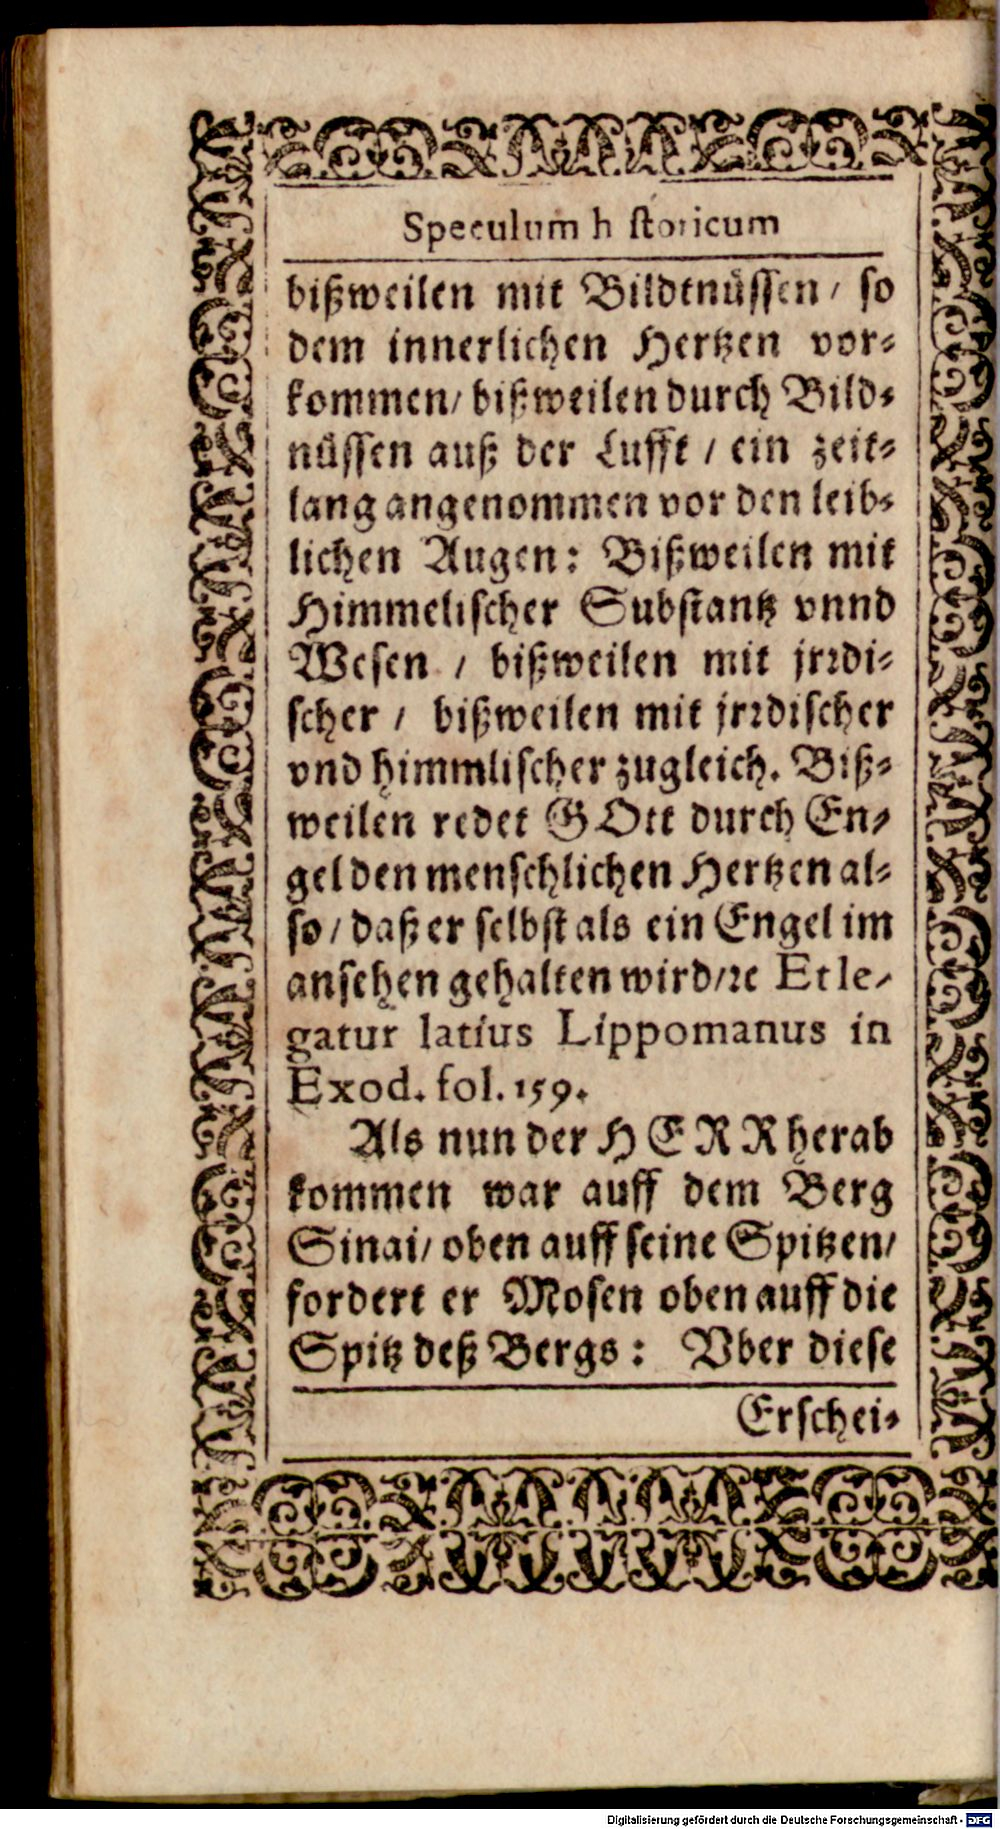 Speculum h storicum
bißweilen mit Bildtnüssen / so
dem innerlichen Hertzen vor-
kommen / bißweilen durch Bild-
nüssen auß der Lufft / ein zeit-
lang angenommen vor den leib-
lichen Augen: Bißweilen mit
Himmelischer Substantz vnnd
Wesen / bißweilen mit jrrdi-
scher / bißweilen mit jrrdischer
vnd himmlischer zugleich. Biß-
weilen redet GOtt durch En-
gel den menschlichen Hertzen al-
so / daß er selbst als ein Engel im
ansehen gehalten wird / ꝛc Et le-
gatur latius Lippomanus in
Exod. fol. 159.
Als nun der HERR herab
kommen war auff dem Berg
Sinai / oben auff seine Spitzen /
fordert er Mosen oben auff die
Spitz deß Bergs: Vber diese
Erschei-
Digitalisierung gefördert durch die Deutsche Forschungsgemeinschaft - DFG